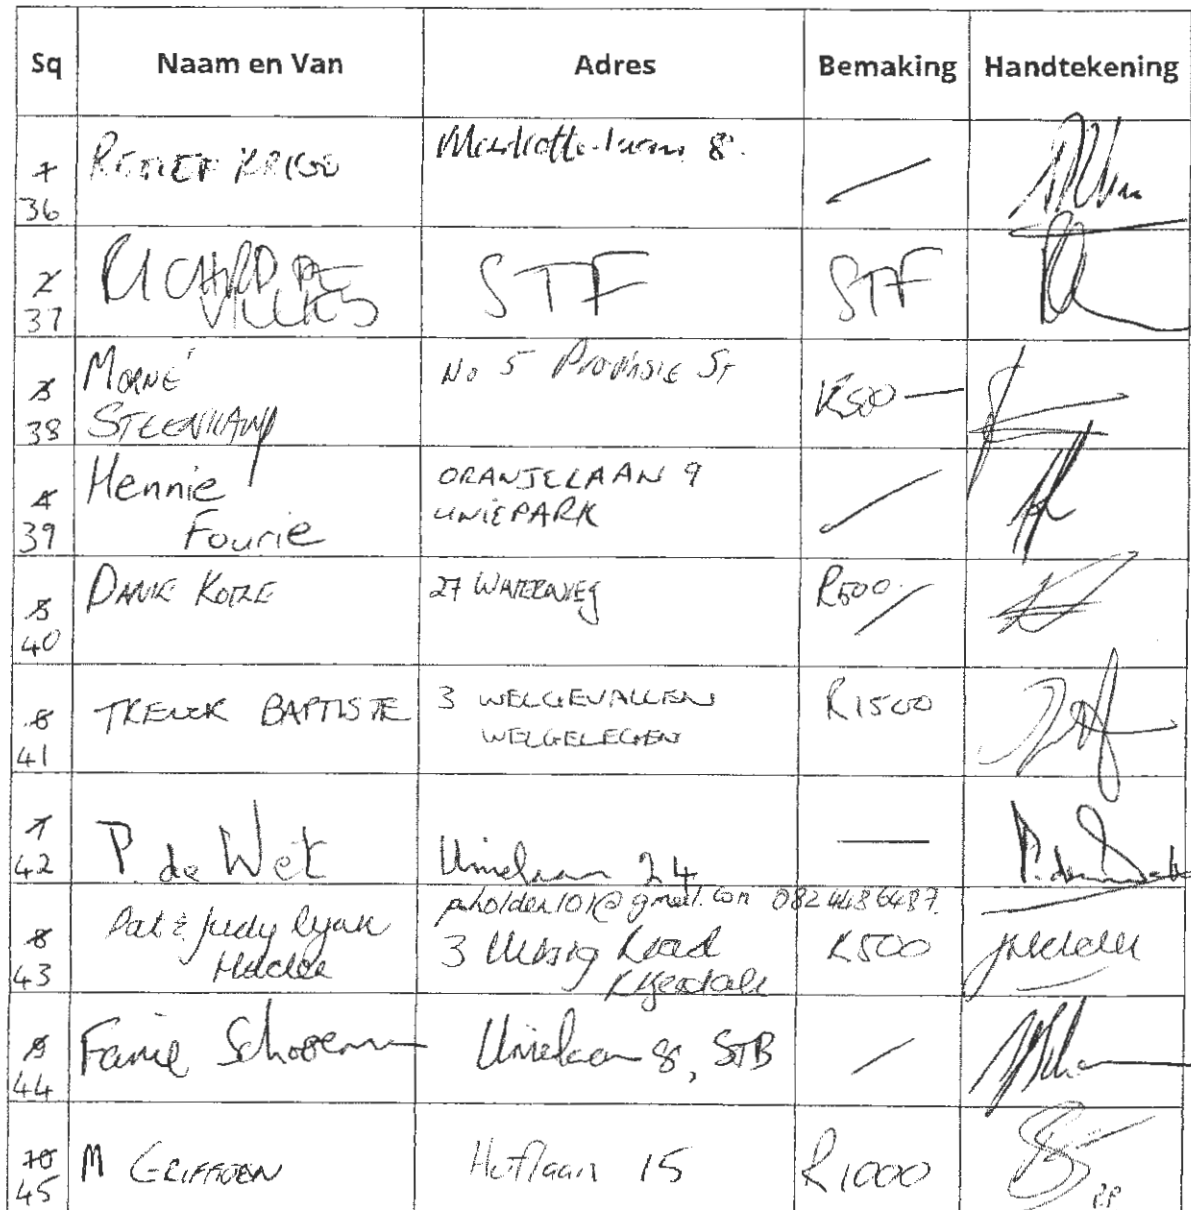 Sq Naam en Van Adres Bemaking Handtekening
7 36 RETIEF KRIGE 8. —
2 37 RICHARD DE VILLIERS STF STF
3 38 MORNÉ STEENKAMP No 5 PROVINSIE ST R500 —
4 39 Hennie Fourie ORANJELAAN 9 UNIEPARK —
5 40 DANIE KOTZE 27 WATERWEG R500 —
6 41 TRENCK BAPTISTE 3 WELGEVALLEN WELGELEGEN R1500
7 42 P. de Wet Unielaan 24 — P. de Wet
8 43 Pat & Judy Ryan Holder pholder101@gmail.com 082 4486487. 3 Road R500
9 44 Fanie Schoeman Unielaan 8, STB —
10 45 M GRIFFIOEN Hoflaan 15 R1000 PP